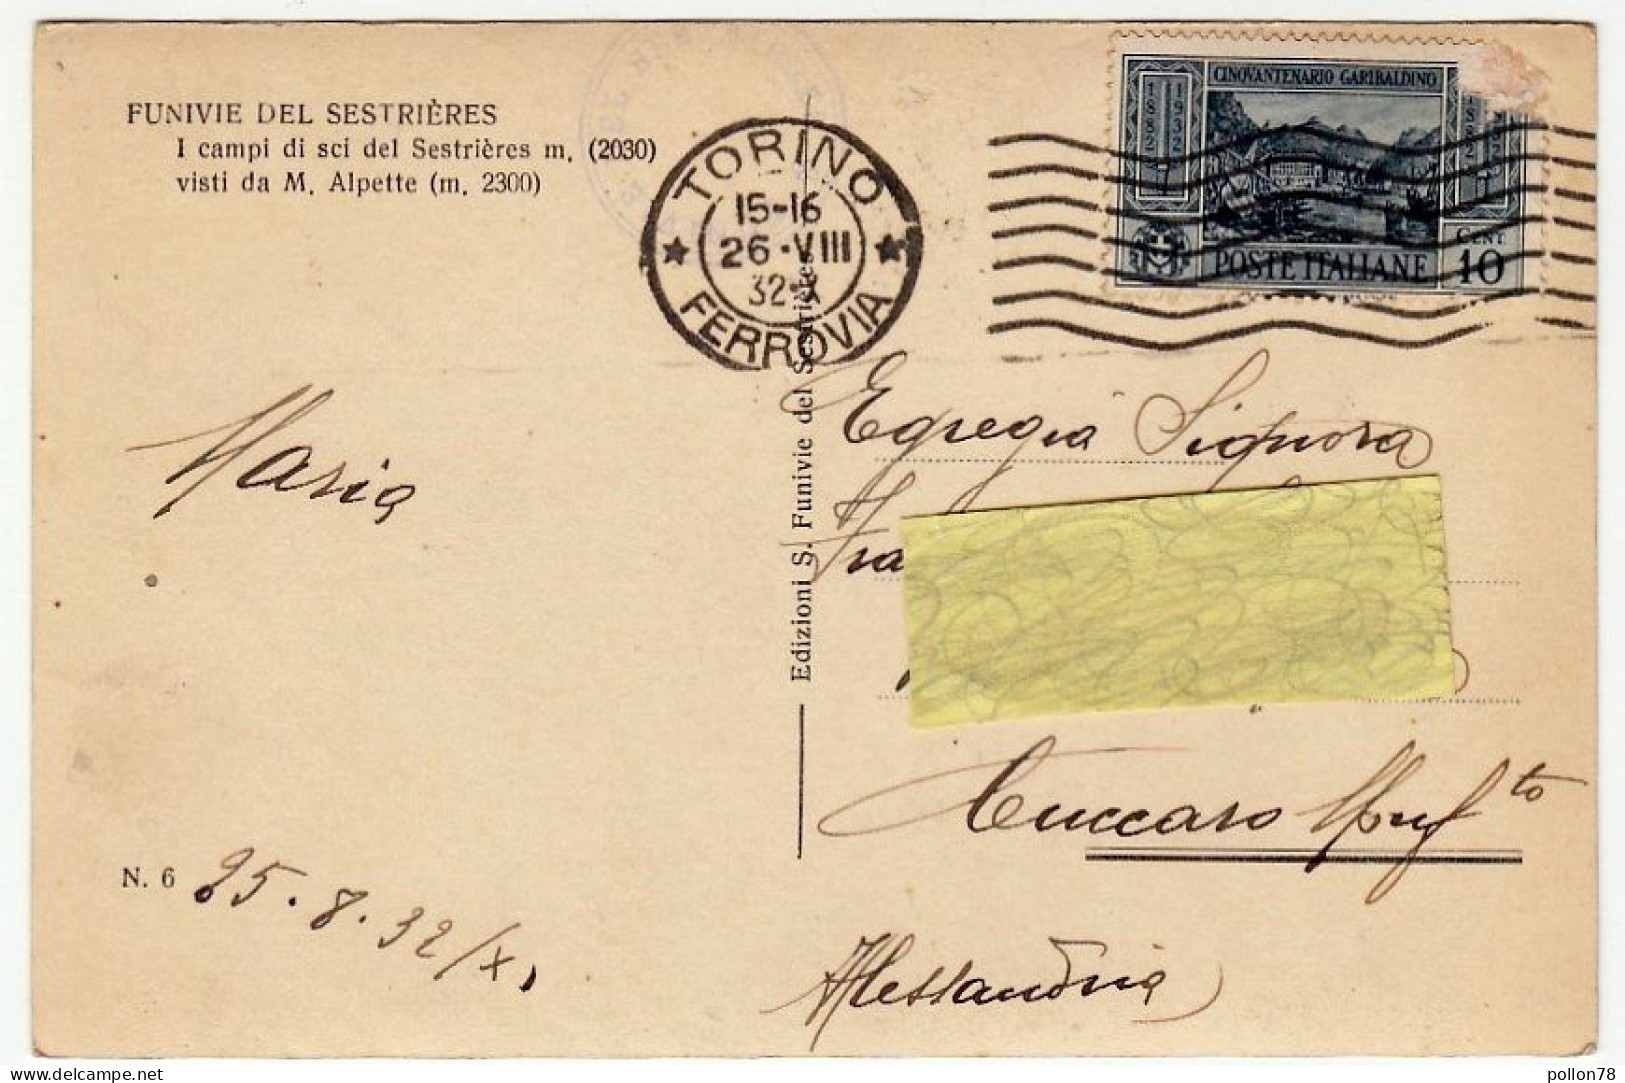 FUNIVIE DEL SESTRIÈRES
I campi di sci del Sestrières m. (2030)
visti da M. Alpette (m. 2300)
TORINO
15-16
26·VIII
32 X
FERROVIA
CINQVANTENARIO GARIBALDINO
1882
1932
1882
CENT
POSTE ITALIANE 10
Edizioni S. Funivie del Sestrières
Maria
Egregia Signora
Cuccaro Monf.to
Alessandria
N. 6
25.8.32/X
pollon78